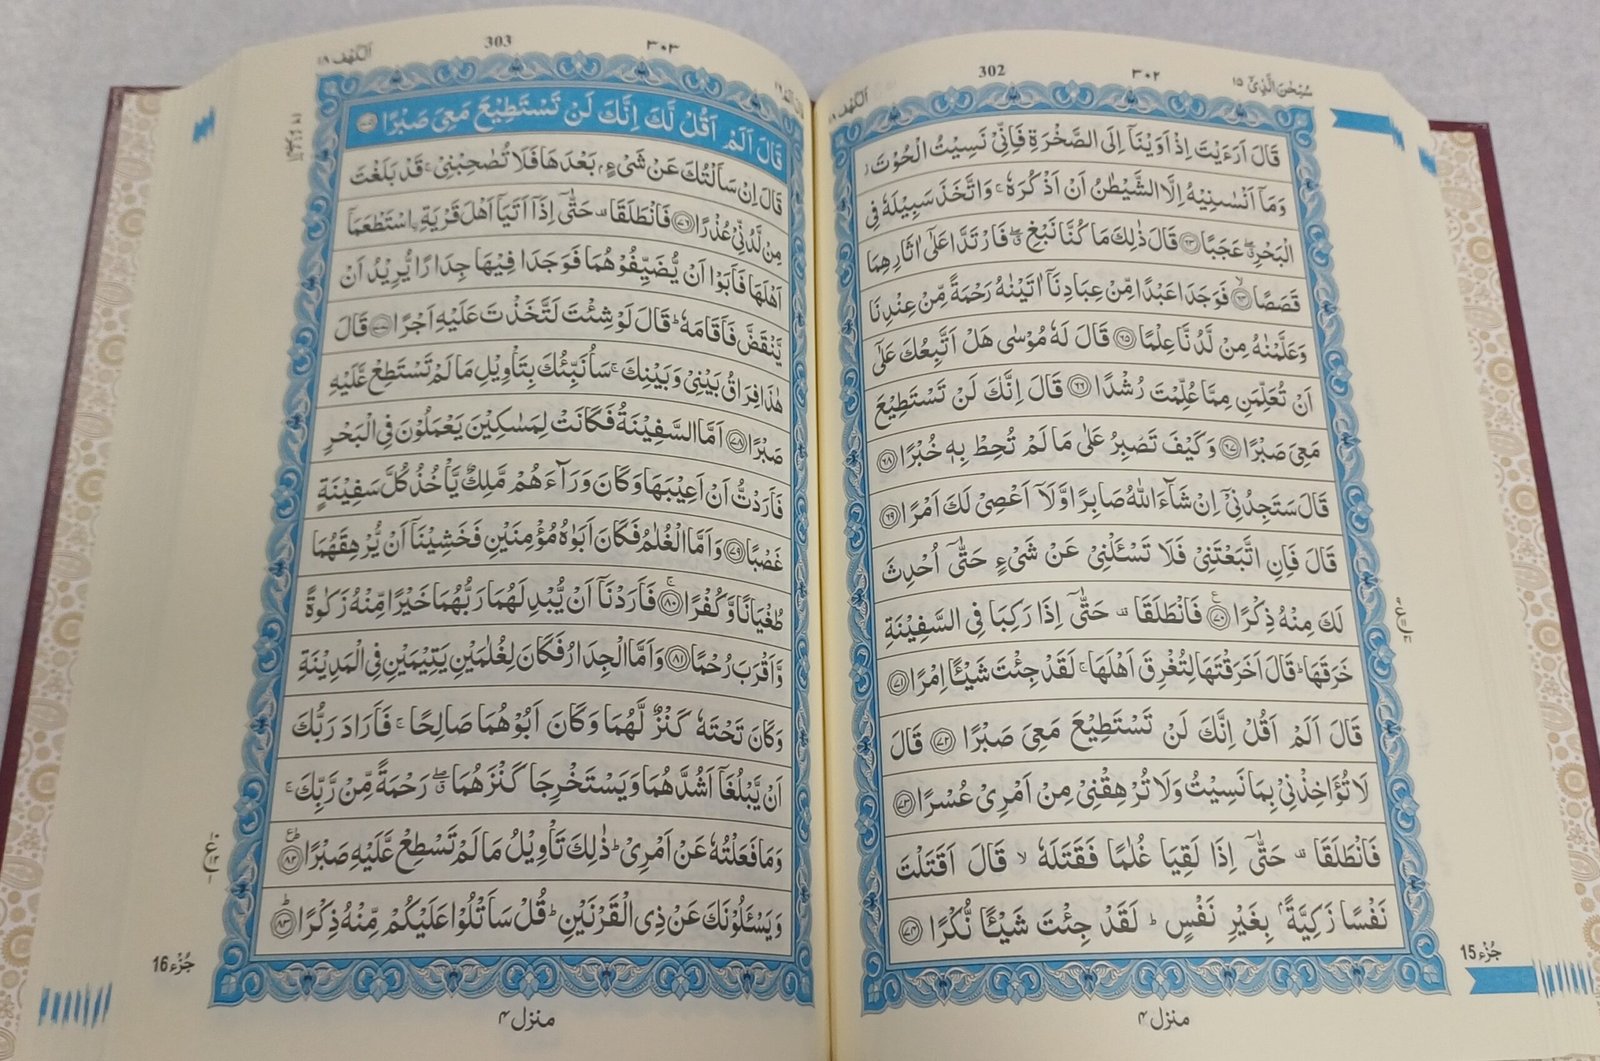 سُبْحٰنَ الَّذِیْۤ ١٥
٣٠٢
302
اَلْكَهْف ١٨
قَالَ اَرَءَیْتَ اِذْ اَوَیْنَاۤ اِلَی الصَّخْرَةِ فَاِنِّیْ نَسِیْتُ الْحُوْتَ ؗ
وَمَاۤ اَنْسٰىنِیْهُ اِلَّا الشَّیْطٰنُ اَنْ اَذْكُرَهٗ ۚ وَاتَّخَذَ سَبِیْلَهٗ فِی
الْبَحْرِ ۖۗ عَجَبًا ﴿٦٣﴾ قَالَ ذٰلِكَ مَا كُنَّا نَبْغِ ۖۗ فَارْتَدَّا عَلٰۤی اٰثَارِهِمَا
قَصَصًا ﴿٦٤﴾ۙ فَوَجَدَا عَبْدًا مِّنْ عِبَادِنَاۤ اٰتَیْنٰهُ رَحْمَةً مِّنْ عِنْدِنَا
وَعَلَّمْنٰهُ مِنْ لَّدُنَّا عِلْمًا ﴿٦٥﴾ قَالَ لَهٗ مُوْسٰی هَلْ اَتَّبِعُكَ عَلٰۤی
اَنْ تُعَلِّمَنِ مِمَّا عُلِّمْتَ رُشْدًا ﴿٦٦﴾ قَالَ اِنَّكَ لَنْ تَسْتَطِیْعَ
مَعِیَ صَبْرًا ﴿٦٧﴾ وَكَیْفَ تَصْبِرُ عَلٰی مَا لَمْ تُحِطْ بِهٖ خُبْرًا ﴿٦٨﴾
قَالَ سَتَجِدُنِیْۤ اِنْ شَآءَ اللّٰهُ صَابِرًا وَّلَاۤ اَعْصِیْ لَكَ اَمْرًا ﴿٦٩﴾
قَالَ فَاِنِ اتَّبَعْتَنِیْ فَلَا تَسْـَٔلْنِیْ عَنْ شَیْءٍ حَتّٰۤی اُحْدِثَ
لَكَ مِنْهُ ذِكْرًا ﴿٧٠﴾ع فَانْطَلَقَا ۥ حَتّٰۤی اِذَا رَكِبَا فِی السَّفِیْنَةِ
خَرَقَهَا ؕ قَالَ اَخَرَقْتَهَا لِتُغْرِقَ اَهْلَهَا ۚ لَقَدْ جِئْتَ شَیْـًٔا اِمْرًا ﴿٧١﴾
قَالَ اَلَمْ اَقُلْ اِنَّكَ لَنْ تَسْتَطِیْعَ مَعِیَ صَبْرًا ﴿٧٢﴾ قَالَ
لَا تُؤَاخِذْنِیْ بِمَا نَسِیْتُ وَلَا تُرْهِقْنِیْ مِنْ اَمْرِیْ عُسْرًا ﴿٧٣﴾
فَانْطَلَقَا ۥ حَتّٰۤی اِذَا لَقِیَا غُلٰمًا فَقَتَلَهٗ ۙ قَالَ اَقَتَلْتَ
نَفْسًا زَكِیَّةًۢ بِغَیْرِ نَفْسٍ ؕ لَقَدْ جِئْتَ شَیْـًٔا نُّكْرًا ﴿٧٤﴾
جُزْء 15
منزل ٤
٣٠٣
303
اَلْكَهْف ١٨
قَالَ اَلَمْ اَقُلْ لَّكَ اِنَّكَ لَنْ تَسْتَطِیْعَ مَعِیَ صَبْرًا ﴿٧٥﴾
قَالَ اِنْ سَاَلْتُكَ عَنْ شَیْءٍۭ بَعْدَهَا فَلَا تُصٰحِبْنِیْ ۚ قَدْ بَلَغْتَ
مِنْ لَّدُنِّیْ عُذْرًا ﴿٧٦﴾ فَانْطَلَقَا ۥ حَتّٰۤی اِذَاۤ اَتَیَاۤ اَهْلَ قَرْیَةِ ِۨاسْتَطْعَمَاۤ
اَهْلَهَا فَاَبَوْا اَنْ یُّضَیِّفُوْهُمَا فَوَجَدَا فِیْهَا جِدَارًا یُّرِیْدُ اَنْ
یَّنْقَضَّ فَاَقَامَهٗ ؕ قَالَ لَوْ شِئْتَ لَتَّخَذْتَ عَلَیْهِ اَجْرًا ﴿٧٧﴾ قَالَ
هٰذَا فِرَاقُ بَیْنِیْ وَبَیْنِكَ ۚ سَاُنَبِّئُكَ بِتَاْوِیْلِ مَا لَمْ تَسْتَطِعْ عَّلَیْهِ
صَبْرًا ﴿٧٨﴾ اَمَّا السَّفِیْنَةُ فَكَانَتْ لِمَسٰكِیْنَ یَعْمَلُوْنَ فِی الْبَحْرِ
فَاَرَدْتُّ اَنْ اَعِیْبَهَا وَكَانَ وَرَآءَهُمْ مَّلِكٌ یَّاْخُذُ كُلَّ سَفِیْنَةٍ
غَصْبًا ﴿٧٩﴾ وَاَمَّا الْغُلٰمُ فَكَانَ اَبَوٰهُ مُؤْمِنَیْنِ فَخَشِیْنَاۤ اَنْ یُّرْهِقَهُمَا
طُغْیَانًا وَّكُفْرًا ﴿٨٠﴾ۚ فَاَرَدْنَاۤ اَنْ یُّبْدِلَهُمَا رَبُّهُمَا خَیْرًا مِّنْهُ زَكٰوةً
وَّاَقْرَبَ رُحْمًا ﴿٨١﴾ وَاَمَّا الْجِدَارُ فَكَانَ لِغُلٰمَیْنِ یَتِیْمَیْنِ فِی الْمَدِیْنَةِ
وَكَانَ تَحْتَهٗ كَنْزٌ لَّهُمَا وَكَانَ اَبُوْهُمَا صَالِحًا ۚ فَاَرَادَ رَبُّكَ
اَنْ یَّبْلُغَاۤ اَشُدَّهُمَا وَیَسْتَخْرِجَا كَنْزَهُمَا ۖۗ رَحْمَةً مِّنْ رَّبِّكَ ۚ
وَمَا فَعَلْتُهٗ عَنْ اَمْرِیْ ؕ ذٰلِكَ تَاْوِیْلُ مَا لَمْ تَسْطِعْ عَّلَیْهِ صَبْرًا ﴿٨٢﴾ؕع
وَیَسْـَٔلُوْنَكَ عَنْ ذِی الْقَرْنَیْنِ ؕ قُلْ سَاَتْلُوْا عَلَیْكُمْ مِّنْهُ ذِكْرًا ﴿٨٣﴾ؕ
جُزْء 16
منزل ٤